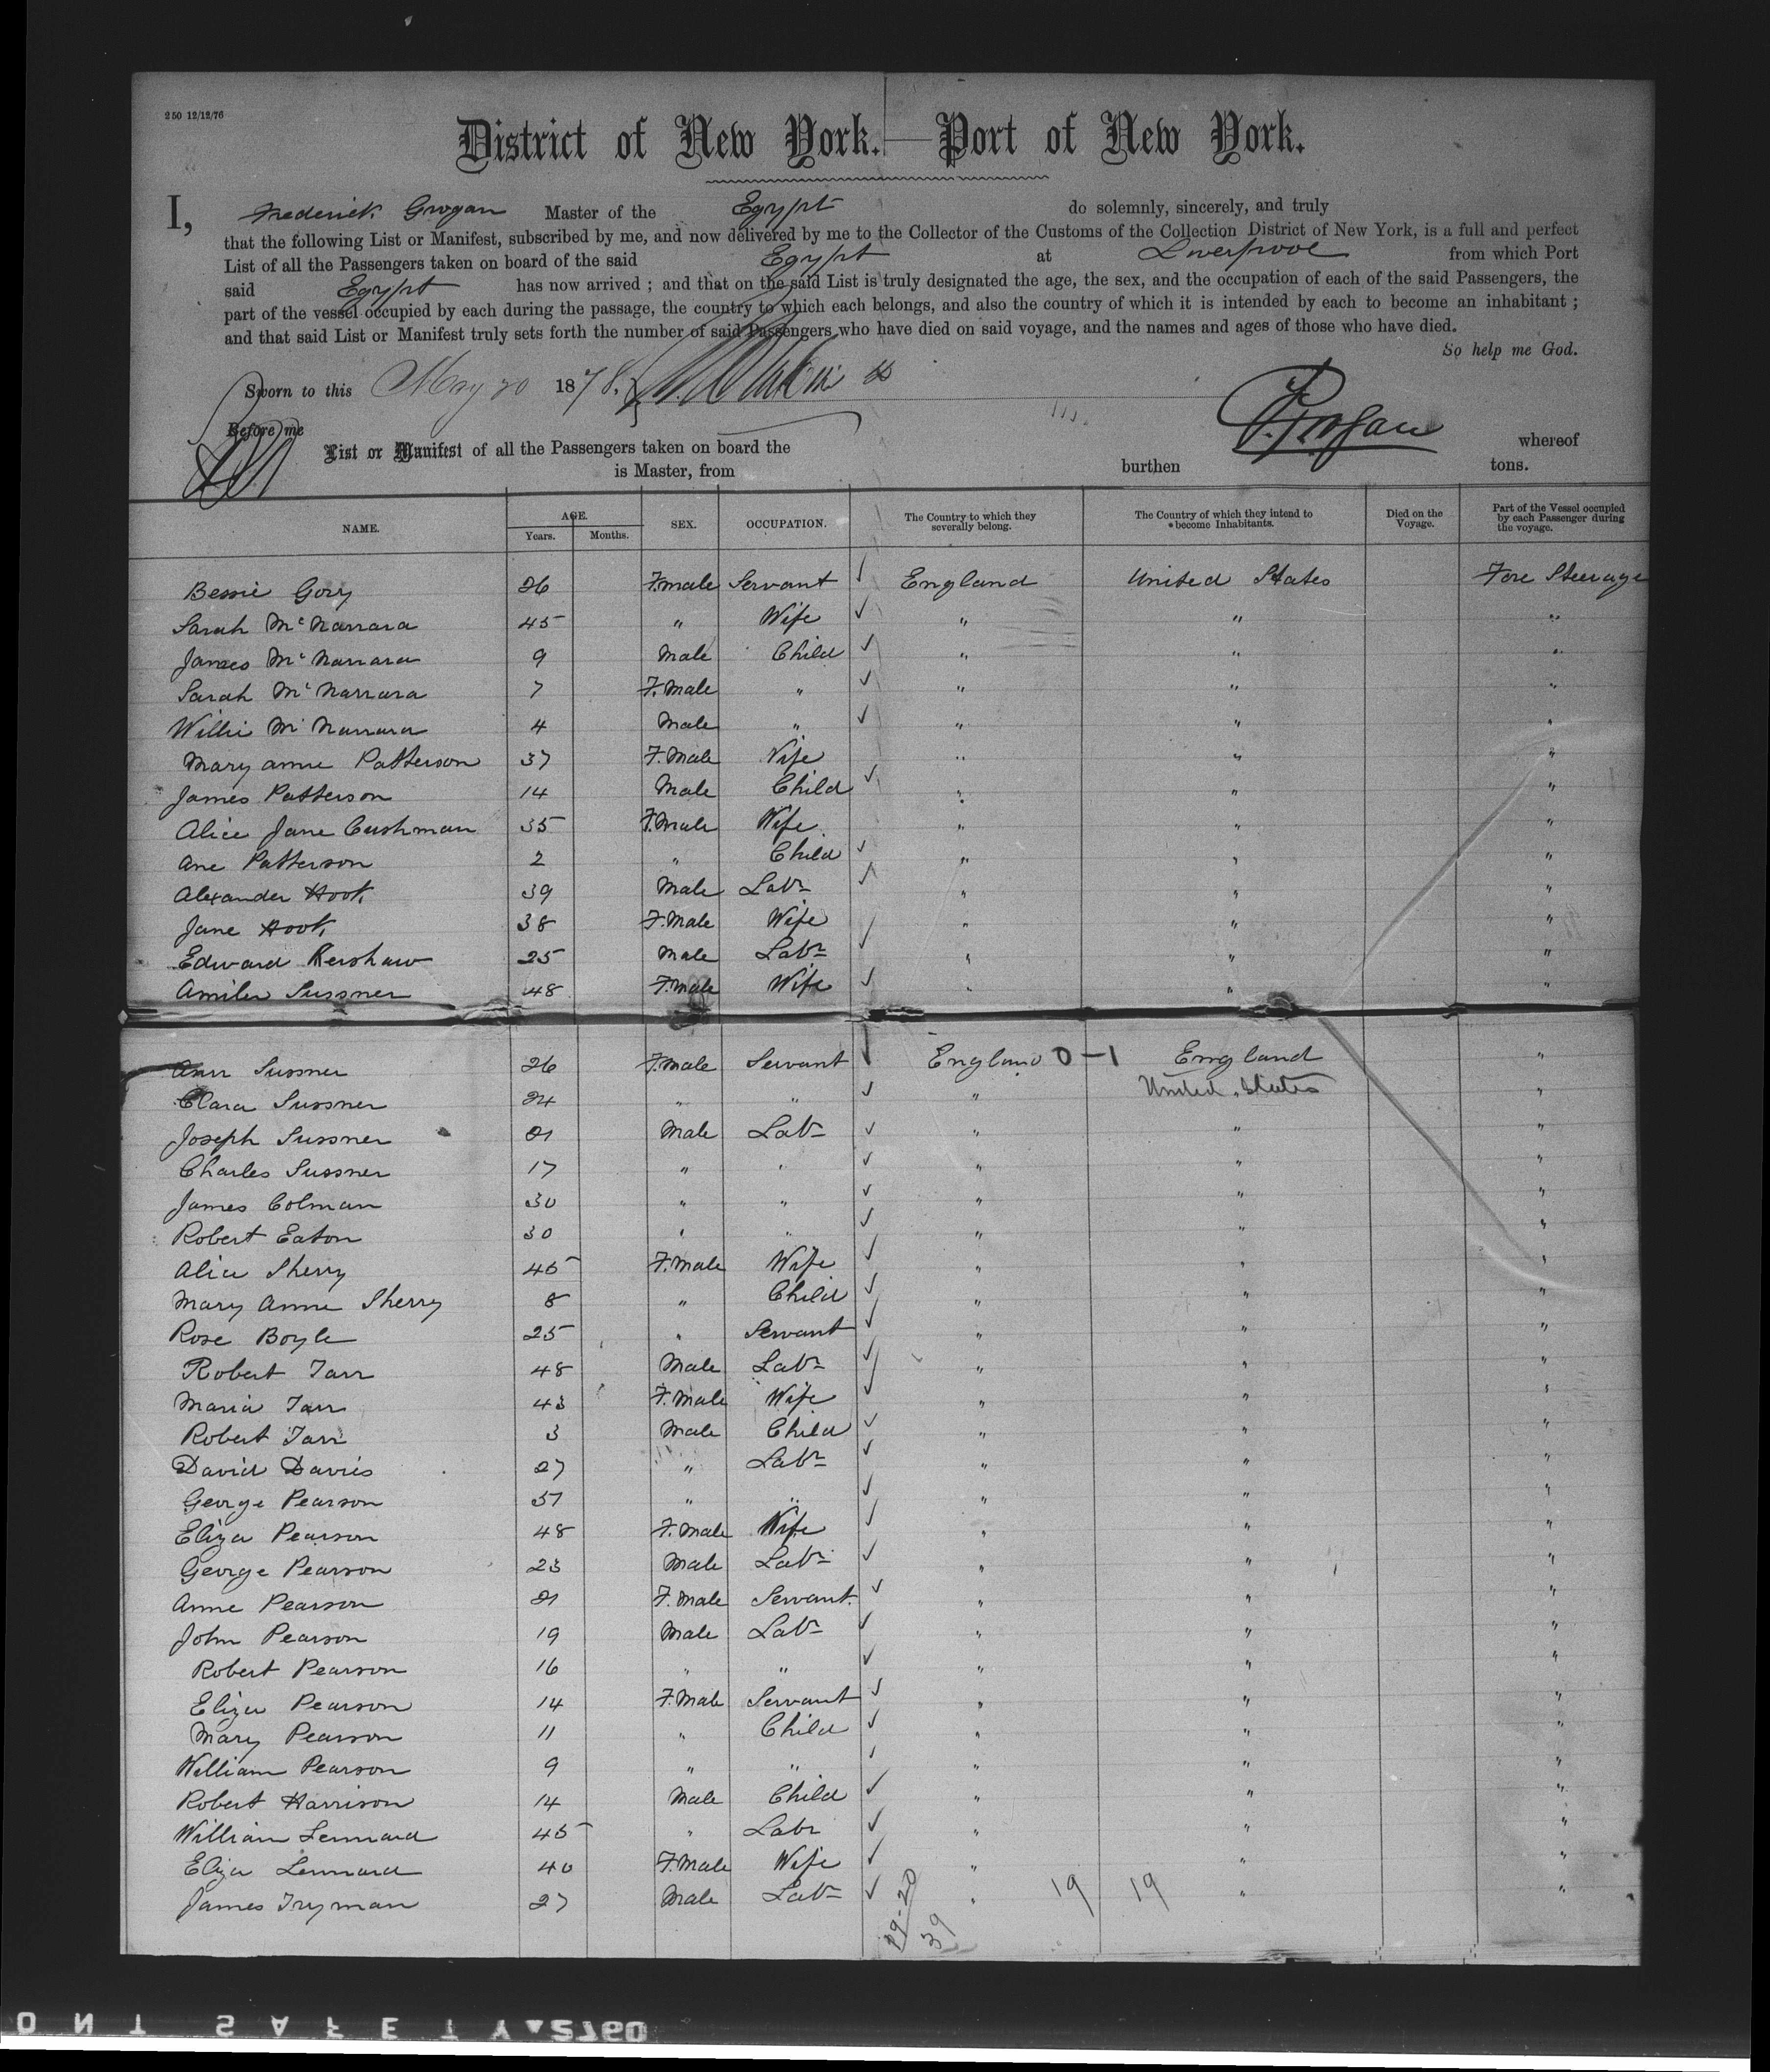 250 12/12/76
District of New York.—Port of New York.
I, Frederick Grogan Master of the Egypt do solemnly, sincerely, and truly
that the following List or Manifest, subscribed by me, and now delivered by me to the Collector of the Customs of the Collection District of New York, is a full and perfect
List of all the Passengers taken on board of the said Egypt at Liverpool from which Port
said Egypt has now arrived ; and that on the said List is truly designated the age, the sex, and the occupation of each of the said Passengers, the
part of the vessel occupied by each during the passage, the country to which each belongs, and also the country of which it is intended by each to become an inhabitant ;
and that said List or Manifest truly sets forth the number of said Passengers who have died on said voyage, and the names and ages of those who have died.
So help me God.
Sworn to this May 20 1878.
F. Grogan
Before me
List or Manifest of all the Passengers taken on board the whereof
is Master, from burthen tons.
NAME. AGE. Years. Months. SEX. OCCUPATION. The Country to which they severally belong. The Country of which they intend to become Inhabitants. Died on the Voyage. Part of the Vessel occupied by each Passenger during the voyage.
Bessie Gory 26 F.male Servant ✓ England United States Fore Steerage
Sarah McNarrara 45 " Wife ✓ " " "
James McNarrara 9 Male Child ✓ " " "
Sarah McNarrara 7 F.male " ✓ " " "
Willie McNarrara 4 Male " ✓ " " "
Mary anne Patterson 37 F.Male Wife " " "
James Patterson 14 Male Child ✓ " " "
Alice Jane Cushman 35 F.Male Wife " " "
Ane Patterson 2 " Child ✓ " " "
Alexander Hook 39 Male Labr ✓ " " "
Jane Hook 38 F.Male Wife " " "
Edward Kershaw 25 Male Labr ✓ " " "
Amilia Sussner 48 F.Male Wife ✓ " " "
Ann Sussner 26 F.Male Servant ✓ England 0-1 England "
Clara Sussner 24 " " ✓ " United States "
Joseph Sussner 21 Male Labr ✓ " " "
Charles Sussner 17 " " ✓ " " "
James Colman 30 " " ✓ " " "
Robert Eaton 30 " " ✓ " " "
Alice Sherry 45 F.Male Wife ✓ " " "
Mary Anne Sherry 8 " Child ✓ " " "
Rose Boyle 25 " Servant ✓ " " "
Robert Tarr 48 Male Labr ✓ " " "
Maria Tarr 43 F.Male Wife ✓ " " "
Robert Tarr 3 Male Child ✓ " " "
David Davies 27 " Labr ✓ " " "
George Pearson 51 " " ✓ " " "
Eliza Pearson 48 F.Male Wife ✓ " " "
George Pearson 23 Male Labr ✓ " " "
Anne Pearson 21 F.Male Servant ✓ " " "
John Pearson 19 Male Labr ✓ " " "
Robert Pearson 16 " " ✓ " " "
Eliza Pearson 14 F.Male Servant ✓ " " "
Mary Pearson 11 " Child ✓ " " "
William Pearson 9 " " ✓ " " "
Robert Harrison 14 Male Child ✓ " " "
William Lennard 45 " Labr ✓ " " "
Eliza Lennard 40 F.Male Wife ✓ " " "
James Tryman 27 Male Labr ✓ " 19 19 " "
19-20
39
O N T S A F E T Y ▲ 2760